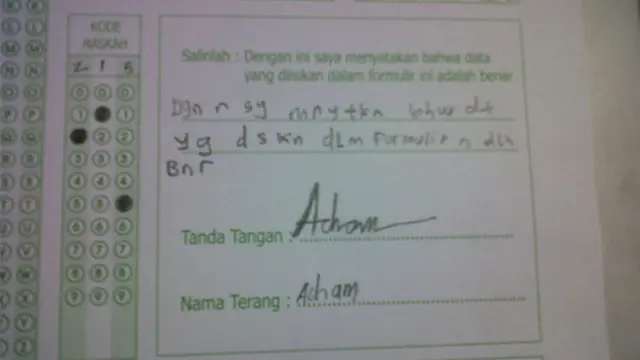 KODE
NASKAH
2 1 5
Salinlah : Dengan ini saya menyatakan bahwa data
yang diisikan dalam formulir ini adalah benar
Dgn n sy mnytkn bhw dt
yg dskn dlm Formulir n dlh
Bnr
Tanda Tangan : Acham
Nama Terang : Acham